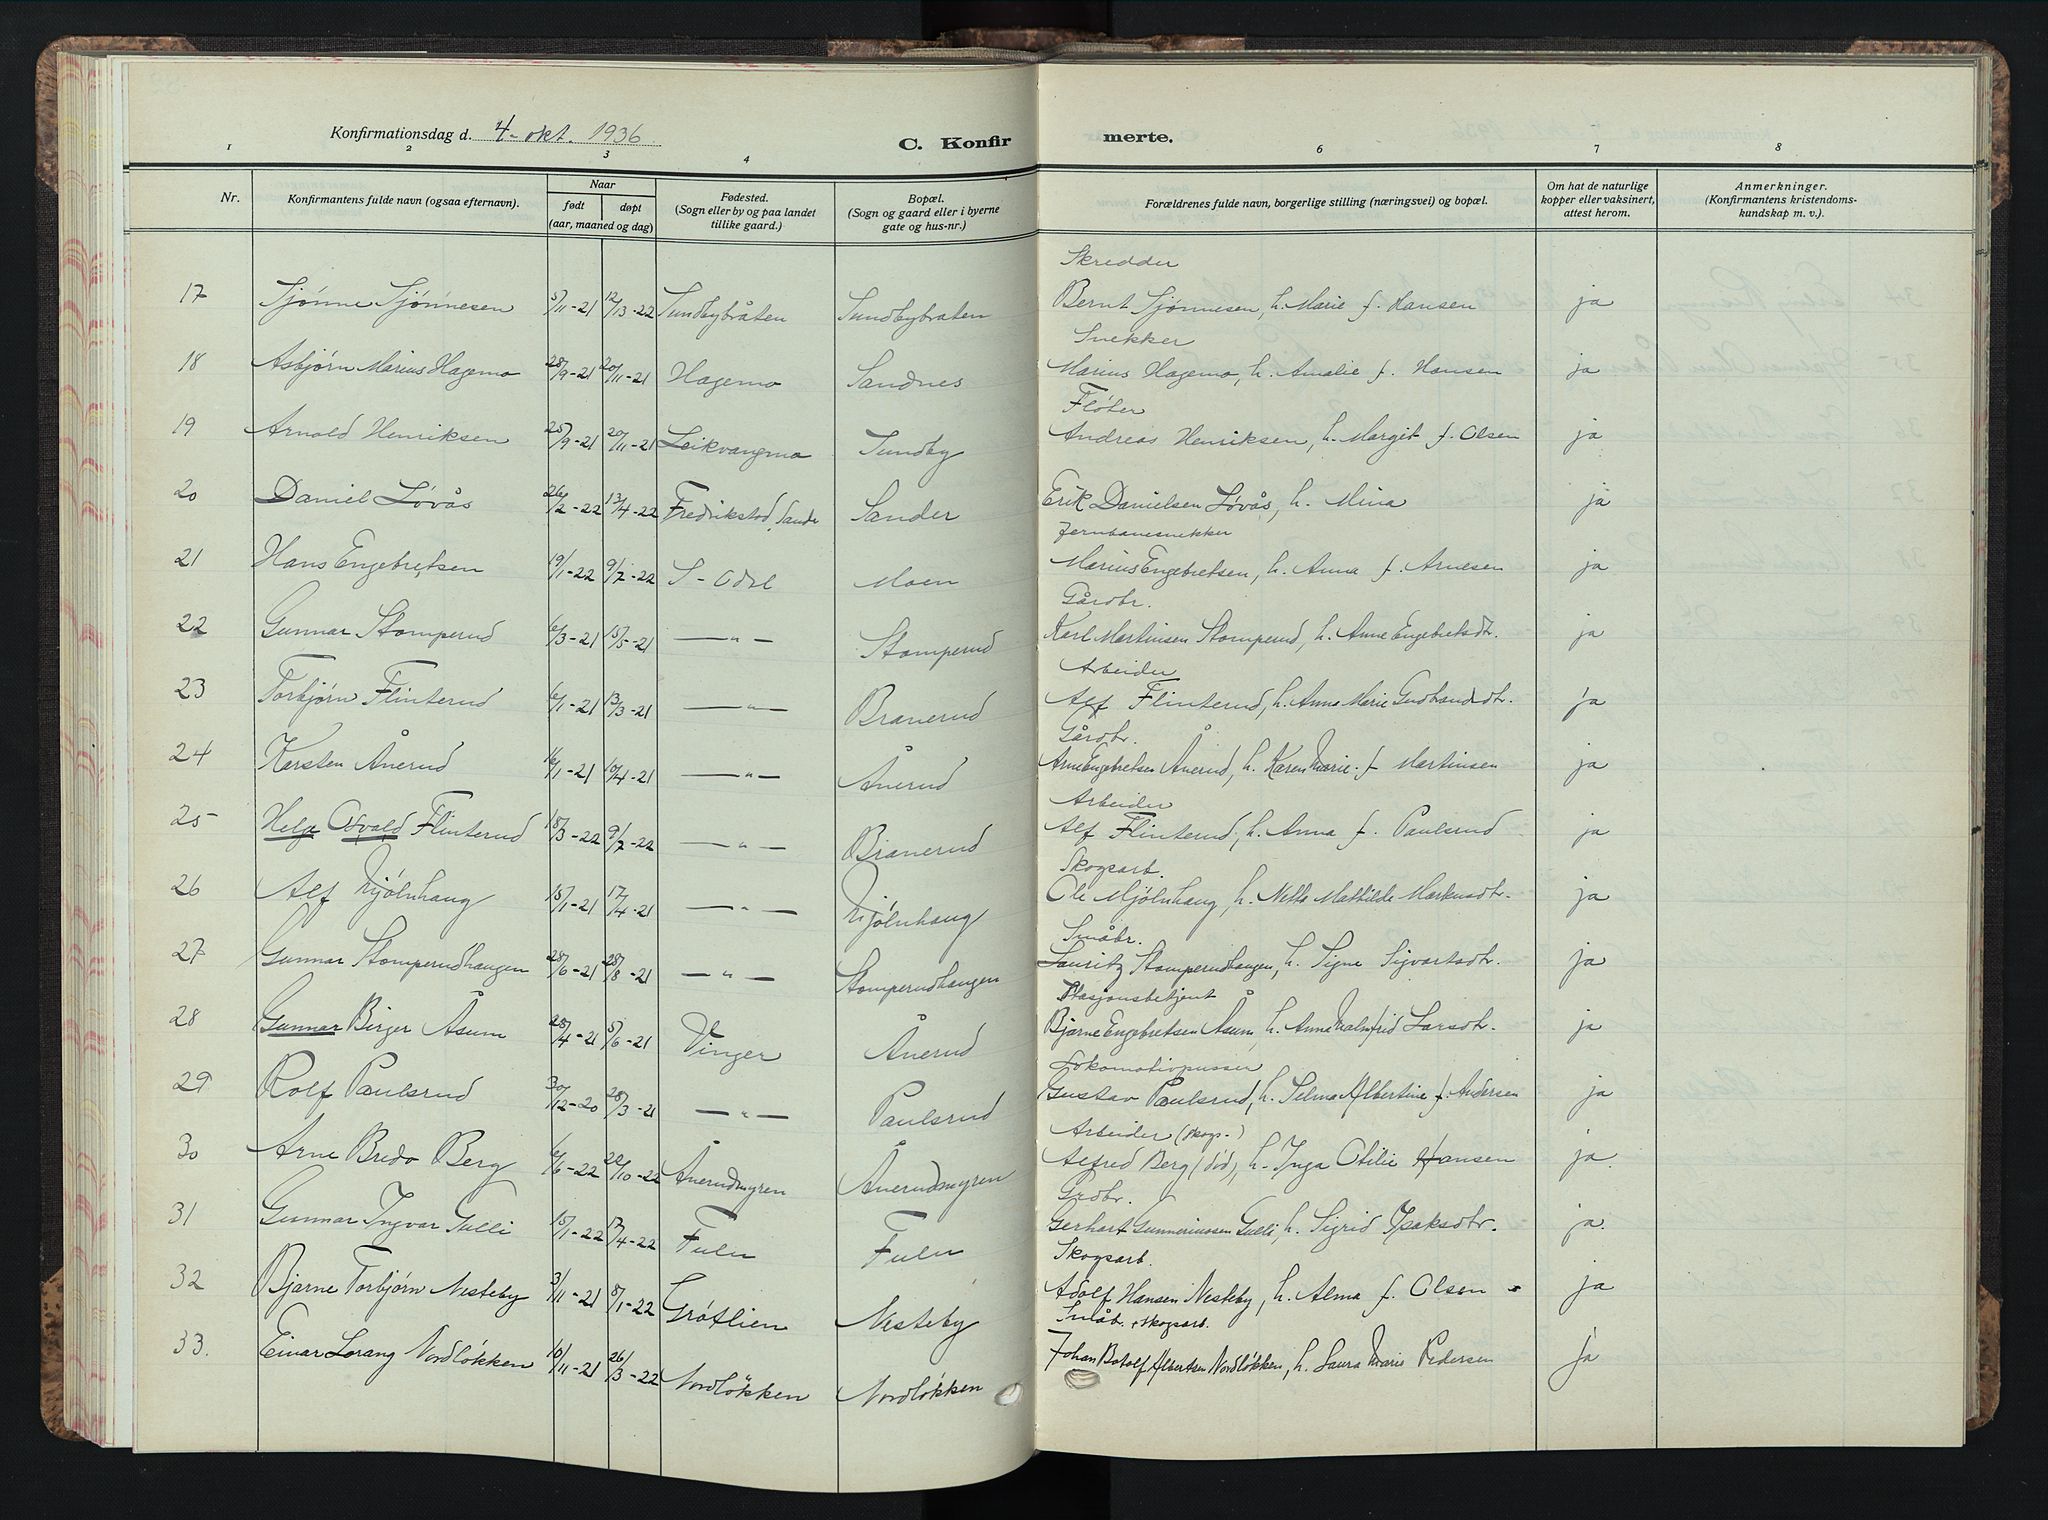 Konfirmationsdag d. 4-okt. 1936
C. Konfirmerte.
1 2 3 4 6 7 8
Nr.
Konfirmantens fulde navn (ogsaa efternavn).
Naar
født døpt
(aar, maaned og dag)
Fødested.
(Sogn eller by og paa landet
tillike gaard.)
Bopæl.
(Sogn og gaard eller i byerne
gate og hus-nr.)
Forældrenes fulde navn, borgerlige stilling (næringsvei) og bopæl.
Om hat de naturlige
kopper eller vaksinert,
attest herom.
Anmerkninger.
(Konfirmantens kristendoms-
kundskap m. v.).
Skredder
17 Sjønne Sjønnesen 5/11-21 12/13-22 Sundbybråten Sundbybraten Bernt Sjønnesen, h. Marie f. Hansen ja
Snekker
18 Asbjørn Marius Hagemo 28/9-21 20/11-21 Hagemo Sandnes Marius Hagemo, h. Amalie f. Hansen ja
Fløter
19 Arnold Henriksen 25/9-21 20/11-21 Leikvangmo Sundby Andreas Henriksen, h. Margit f. Olsen ja
20 Daniel Løvås 26/2-22 13/4-22 Fredrikstad, Sander Erik Danielsen Løvås, h. Mina ja
Jernbanesnekker
21 Hans Engebretsen 19/1-22 9/7-22 S-Odal Moen Marius Engebretsen, h. Anna f. Arnesen ja
Gårdbr.
22 Gunnar Stomperud 6/3-21 15/5-21 —"— Stomperud Karl Martinsen Stomperud, h. Anne Engebretsdtr. ja
Arbeider
23 Torbjørn Flinterud 6/1-21 13/3-21 —"— Branerud Alf Flinterud, h. Anna Marie Gudbrandsdtr. ja
Gårdbr.
24 Karsten Ånerud 16/1-21 10/4-21 —"— Ånerud Arne Engebretsen Ånerud, h. Karen Marie f. Martinsen ja
Arbeider
25 Helge Osvald Flinterud 18/3-22 9/7-22 —"— Branerud Alf Flinterud, h. Anna f. Paulsrud ja
Skogsarb.
26 Alf Mjölnhaug 15/1-21 17/4-21 —"— Mjölnhaug Ole Mjölnhaug, h. Netta Mathilde Markusdtr. ja
Småbr.
27 Gunnar Stomperudhaugen 28/6-21 28/8-21 —"— Stomperudhaugen Lauritz Stomperudhaugen, h. Signe Sigvartsdtr. ja
Stasjonsbetjent
28 Gunnar Birger Åsum 28/4-21 5/6-21 Vinger Ånerud Bjarne Engebretsen Åsum, h. Anna Malmfrid Larsdtr. ja
Lokomotivpusser
29 Rolf Paulsrud 30/12-20 28/3-21 —"— Paulsrud Gustav Paulsrud, h. Selma Albertine f. Andersen ja
Arbeider (skogs-)
30 Arne Bredo Berg 6/6-22 22/10-22 Ånerudmyren Ånerudmyren Alfred Berg (død), h. Inga Otilie Hansen ja.
Grdbr.
31 Gunnar Ingvar Gulli 15/1-22 17/4-22 Fulu Fulu Gerhart Gunneriussen Gulli, h. Sigrid Isaksdtr. ja.
Skogsarb.
32 Bjarne Torbjørn Nesteby 3/11-21 8/1-22 Grøtlien Nesteby Adolf Hansen Nesteby, h. Alma f. Olsen ja
Småbr. + skogsarb.
33. Einar Lorang Nordløkken 10/11-21 26/3-22 Nordløkken Nordløkken Johan Botolf Albertsen Nordløkken, h. Laura Marie Pedersen ja